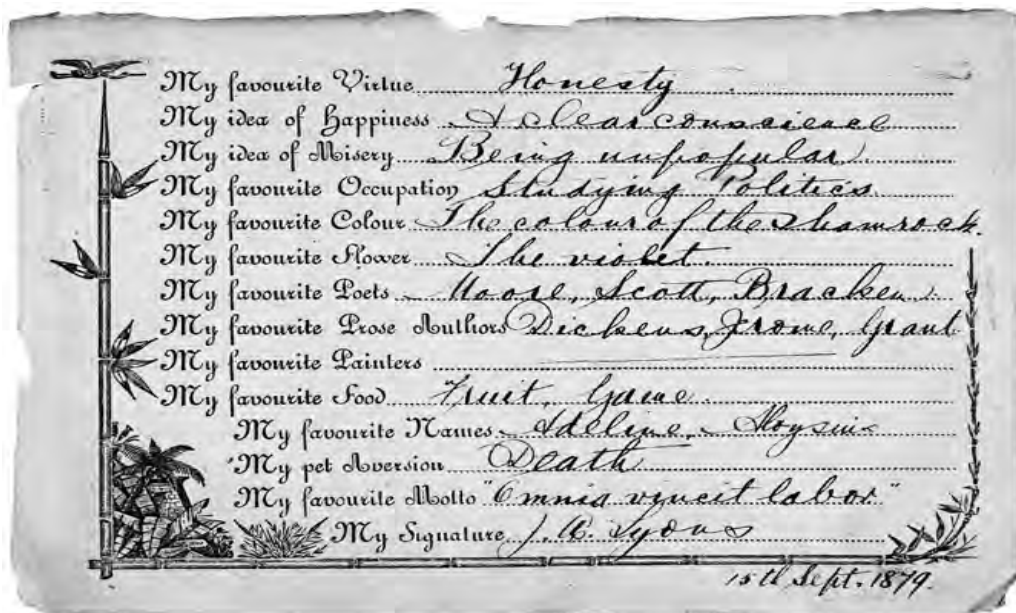 My favourite Virtue Honesty
My idea of Happiness A clear conscience
My idea of Misery Being unpopular
My favourite Occupation Studying Politics
My favourite Colour The colour of the Shamrock.
My favourite Flower The violet.
My favourite Poets Moore, Scott, Bracken
My favourite Prose Authors Dickens, Jrome, Grant
My favourite Painters
My favourite Food Fruit, Game
My favourite Names Adeline, Aloysius
My pet Aversion Death
My favourite Motto "Omnia vincit labor"
My Signature J. A. Lyons
15th Sept. 1879.